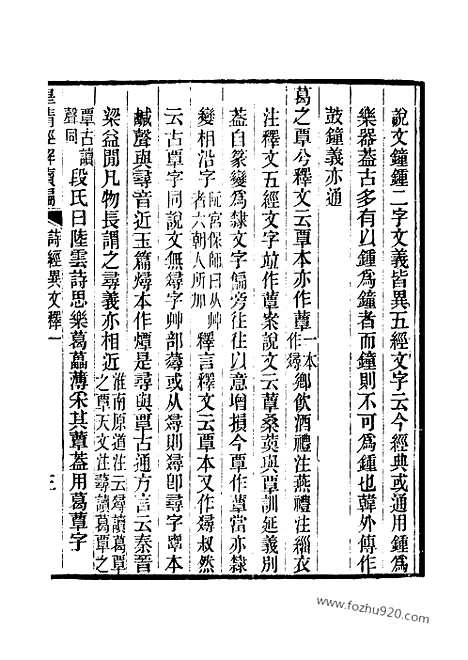 說文鐘鍾二字文義皆異五經文字云今經典或通用鍾爲
樂器葢古多有以鍾爲鐘者而鐘則不可爲鍾也韓外傳作
鼓鐘義亦通
葛之覃兮釋文云覃本亦作蕈一本作㝷鄉飮酒禮注燕禮注緇衣
注釋文五經文字竝作蕈案說文云蕈桑䓴與覃訓延義別
葢自篆變爲隸文字偏旁往往以意增損今覃作蕈當亦隸
變相沿字阮宮保師曰从艸者六朝人所加釋言釋文云覃本又作㝷叔然
云古覃字同說文無㝷字艸部蕁或从㝷則㝷卽尋字覃本
鹹聲與尋音近玉篇燖本作燂是尋與覃古通方言云秦晉
梁益閒凡物長謂之尋義亦相近淮南原道注云尋讀葛覃之覃天文注蕁讀葛覃之
覃古讀聲同段氏曰陸雲詩思樂葛藟薄采其蕈葢用葛蕈字
皇清經解續編
詩經異文釋一
三
www.fozhu920.com